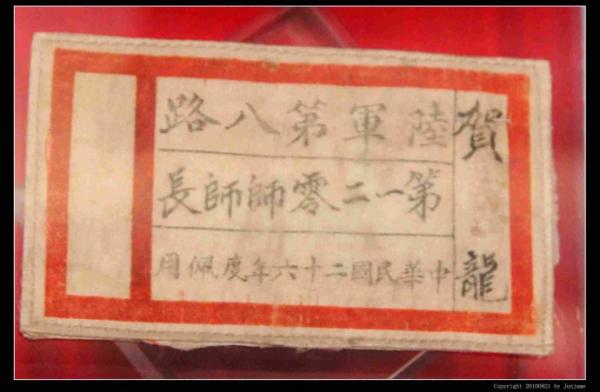 賀龍
陸軍第八路
第一二零師師長
中華民國二十六年度佩用
Copyright 20100821 by Junjame